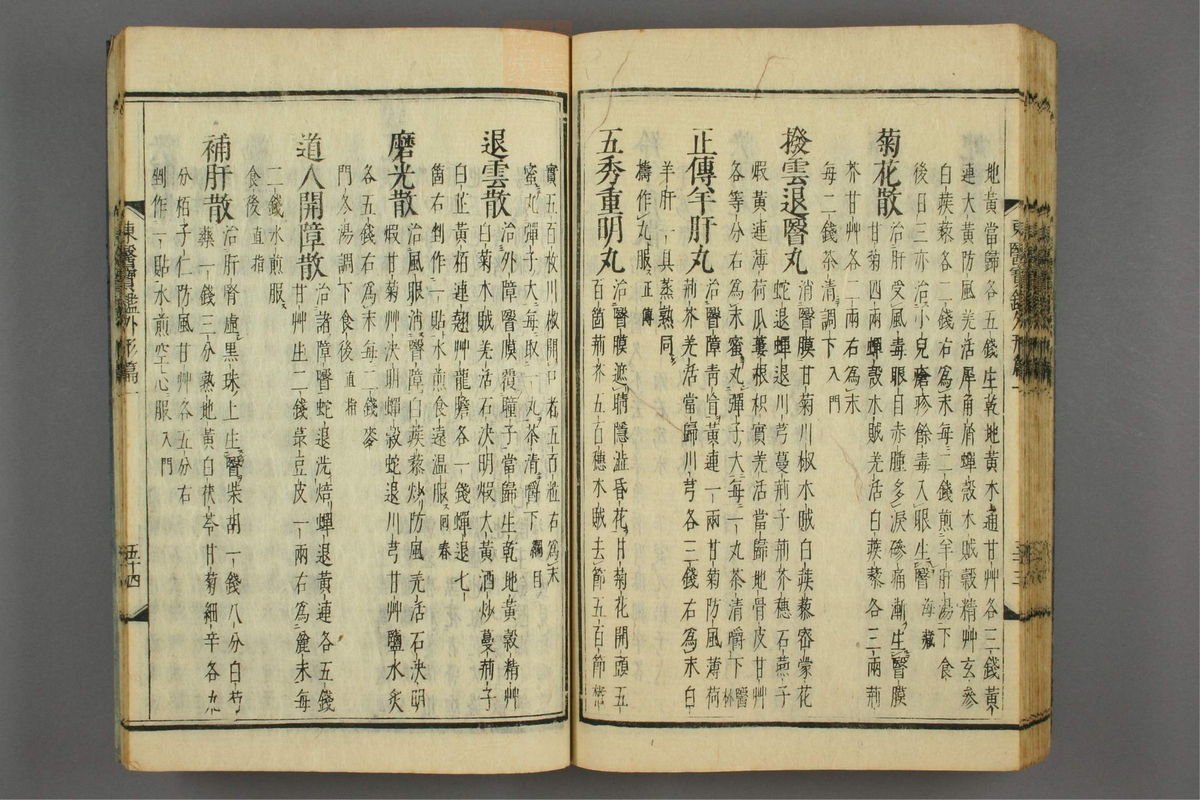 地黃當歸各五錢生乾地黃木通甘艸各三錢黃
連大黃防風羌活犀角屑蟬殼木賊穀精艸玄參
白蒺藜各二錢右為末每二錢煎羊肝湯下食
後日三亦治小兒瘡疹餘毒入眼生瞖海藏
菊花散治肝受風毒眼目赤腫多淚磣痛漸生瞖膜
甘菊四兩蟬殼木賊羌活白蒺藜各三兩荊
芥甘艸各二兩右為末
每二錢茶清調下入門
撥雲退瞖丸消瞖膜甘菊川椒木賊白蒺藜密蒙花
蛇退蟬退川芎蔓荊子荊芥穗石燕子
蝦黃連薄荷瓜蔞根枳實羌活當歸地骨皮甘艸
各等分右為末蜜丸彈子大每一丸茶清嚼下醫林
正傳羊肝丸治瞖障青盲黃連一兩甘菊防風薄荷
荊芥羌活當歸川芎各三錢右為末白
羊肝一具蒸熟同
擣作丸服正傳
五秀重明丸治瞖膜遮睛隱澁昏花甘菊花開頭五
百箇荊芥五百穗木賊去節五百節楮
實五百枚川椒開口者五百粒右為末
蜜丸彈子大每取一丸茶清嚼下綱目
退雲散治外障瞖膜覆瞳子當歸生乾地黃穀精艸
白菊木賊羌活石決明煆大黃酒炒蔓荊子
白芷黃栢連翹艸龍膽各一錢蟬退七
箇右剉作一貼水煎食遠溫服回春
磨光散治風眼消瞖障白蒺藜炒防風羌活石決明
煆甘菊艸決明蟬殼蛇退川芎甘艸鹽水炙
各五錢右為末每二錢麥
門冬湯調下食後直指
道人開障散治諸障瞖蛇退洗焙蟬退黃連各五錢
甘艸生二錢菉豆皮一兩右為麁末每
二錢水煎服
食後直指
補肝散治肝腎虛黑珠上生瞖柴胡一錢八分白芍
藥一錢三分熟地黃白茯苓甘菊細辛各九
分栢子仁防風甘艸各五分右
剉作一貼水煎空心服入門
東醫寶鑑外形篇一
五十三
東醫寶鑑外形篇一
五十四